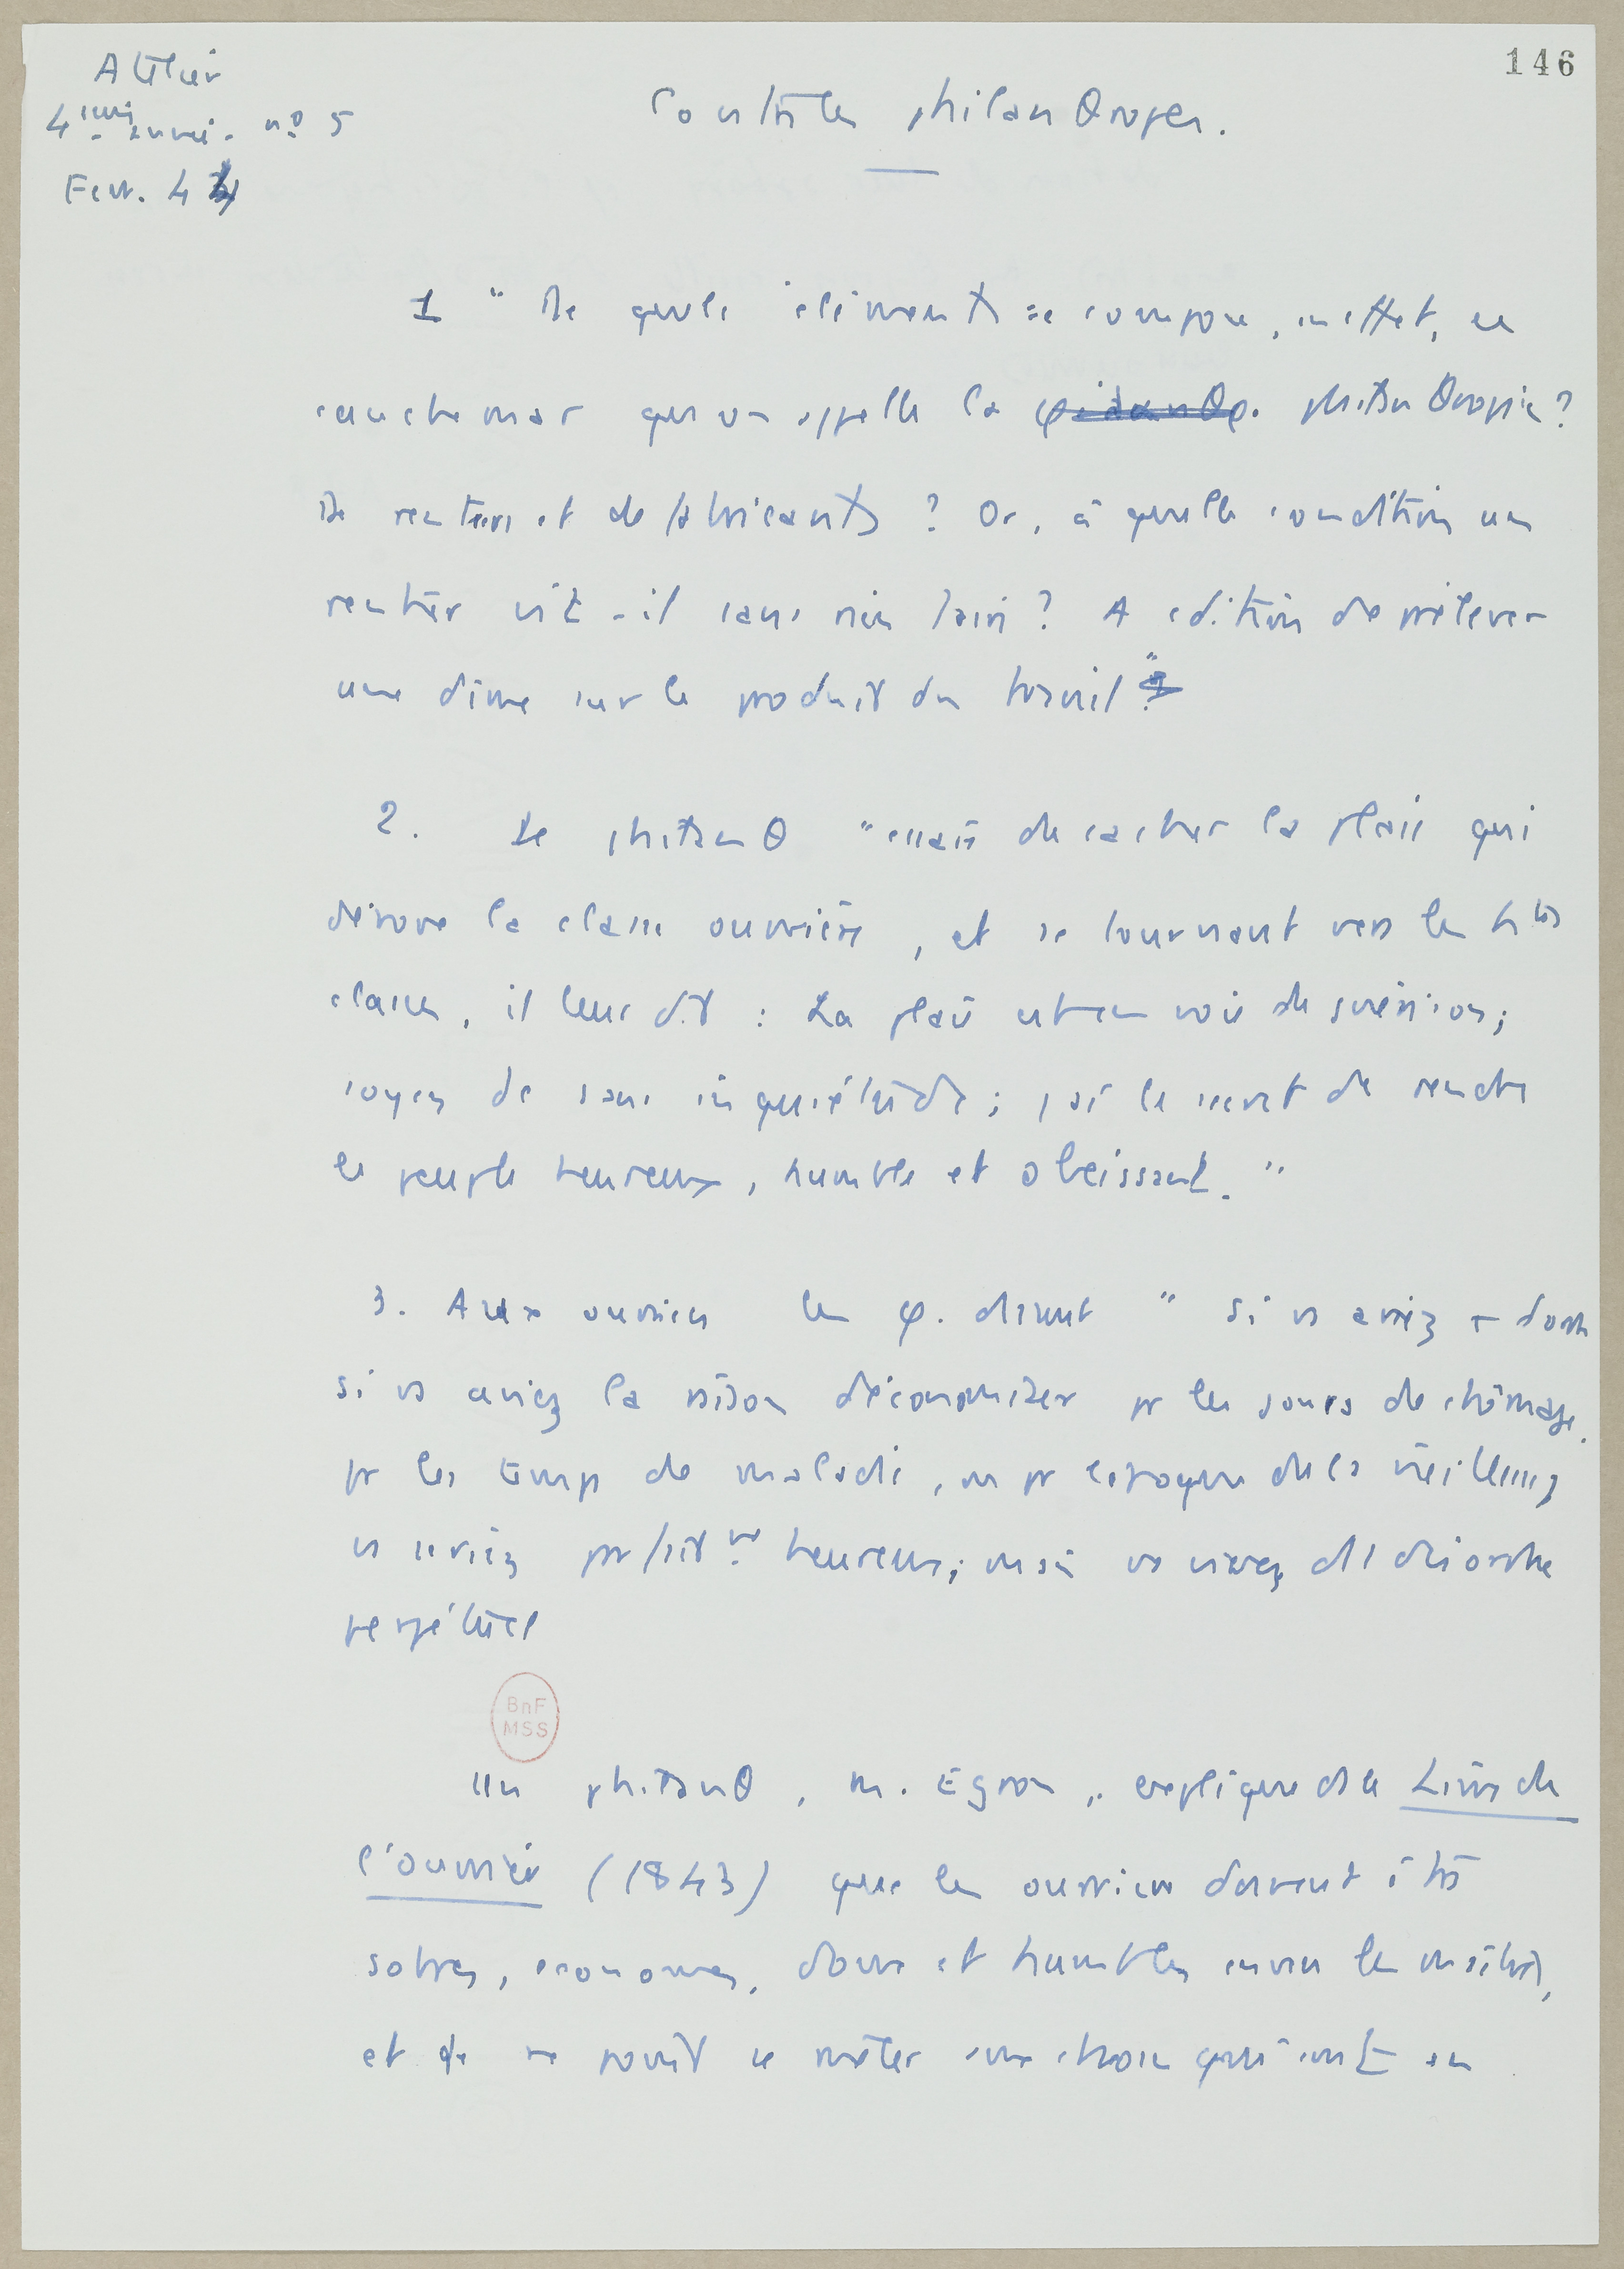 146
Atelier
4ième année. n° 5
Fevr. 44
Contre les philanθropes.
1 " De quels éléments se compose, en effet, ce
cauchemar qu'on appelle la philanθropie ?
De rentiers et de fabricants ? Or, à quelle condition un
rentier vit-il sans rien faire ? A cdition de prélever
une dîme sur le produit du travail "
2. Le philanθ "essaie de cacher la plaie qui
dévore la classe ouvrière, et se tournant vers les htes
classes, il leur dit : La plaie est en voie de guérison ;
soyez dc sans inquiétude ; j'ai le secret de rendre
le peuple heureux, humble et obéissant. "
3. Aux ouvriers les φ. disent " Si vs aviez + d'ordre
si vs aviez la raison d'économiser pr les jours de chômage,
pr les temps de maladie, ou pr l'époque de la vieillesse,
vs seriez parfaitmt heureux ; mais vs vivez ds désordre
perpétuel
Un philanθ, M. Egron, explique ds le Livre de
l'ouvrier (1843) que les ouvriers doivent être
sobres, économes, doux et humbles envers les maîtres,
et de ne point se mêler aux choses qui sont au
BnF
MSS